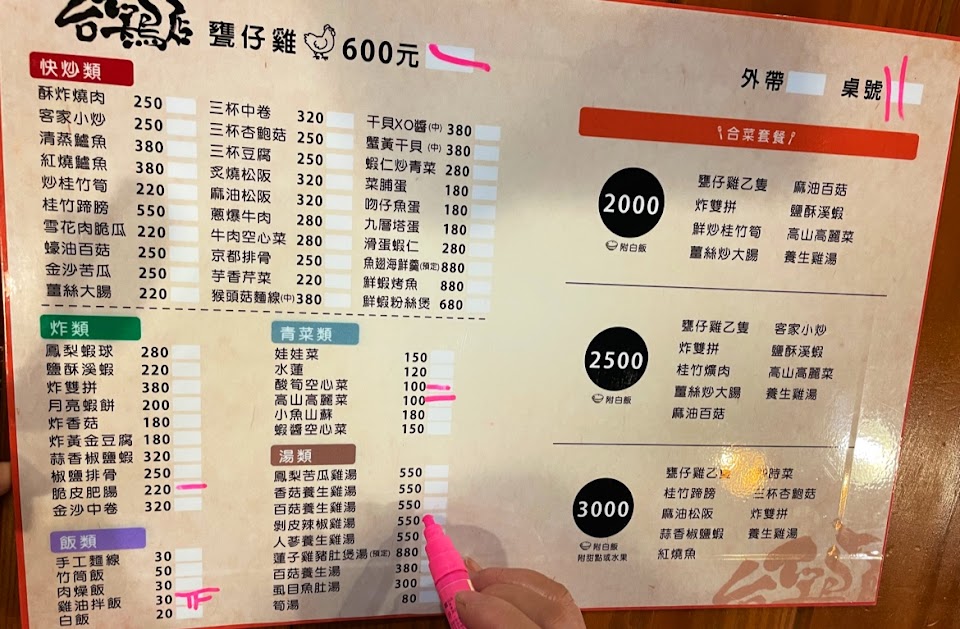 台灣鷄店 甕仔雞 600元
外帶 桌號
快炒類
酥炸燒肉 250
客家小炒 250
清蒸鱸魚 380
紅燒鱸魚 380
炒桂竹筍 220
桂竹蹄膀 550
雪花肉脆瓜 220
蠔油百菇 250
金沙苦瓜 250
薑絲大腸 220
三杯中卷 320
三杯杏鮑菇 250
三杯豆腐 250
炙燒松阪 320
麻油松阪 320
蔥爆牛肉 280
牛肉空心菜 280
京都排骨 250
芋香芹菜 220
猴頭菇麵線(中) 380
干貝XO醬(中) 380
蟹黃干貝(中) 380
蝦仁炒青菜 280
菜脯蛋 180
吻仔魚蛋 180
九層塔蛋 180
滑蛋蝦仁 280
魚翅海鮮羹(預定) 880
鮮蝦烤魚 880
鮮蝦粉絲煲 680
炸類
鳳梨蝦球 280
鹽酥溪蝦 220
炸雙拼 380
月亮蝦餅 200
炸香菇 180
炸黃金豆腐 180
蒜香椒鹽蝦 320
椒鹽排骨 250
脆皮肥腸 220
金沙中卷 320
飯類
手工麵線 30
竹筒飯 50
肉燥飯 30
雞油拌飯 30
白飯 20
青菜類
娃娃菜 150
水蓮 120
酸筍空心菜 100
高山高麗菜 100
小魚山蘇 180
蝦醬空心菜 150
湯類
鳳梨苦瓜雞湯 550
香菇養生雞湯 550
百菇養生雞湯 550
剝皮辣椒雞湯 550
人蔘養生雞湯 550
蓮子雞豬肚煲湯(預定) 880
百菇養生湯 380
虱目魚肚湯 300
筍湯 80
合菜套餐
2000
附白飯
甕仔雞乙隻 麻油百菇
炸雙拼 鹽酥溪蝦
鮮炒桂竹筍 高山高麗菜
薑絲炒大腸 養生雞湯
2500
附白飯
甕仔雞乙隻 客家小炒
炸雙拼 鹽酥溪蝦
桂竹爌肉 高山高麗菜
薑絲炒大腸 養生雞湯
麻油百菇
3000
附白飯
附甜點或水果
甕仔雞乙 時菜
桂竹蹄膀 三杯杏鮑菇
麻油松阪 炸雙拼
蒜香椒鹽蝦 養生雞湯
紅燒魚